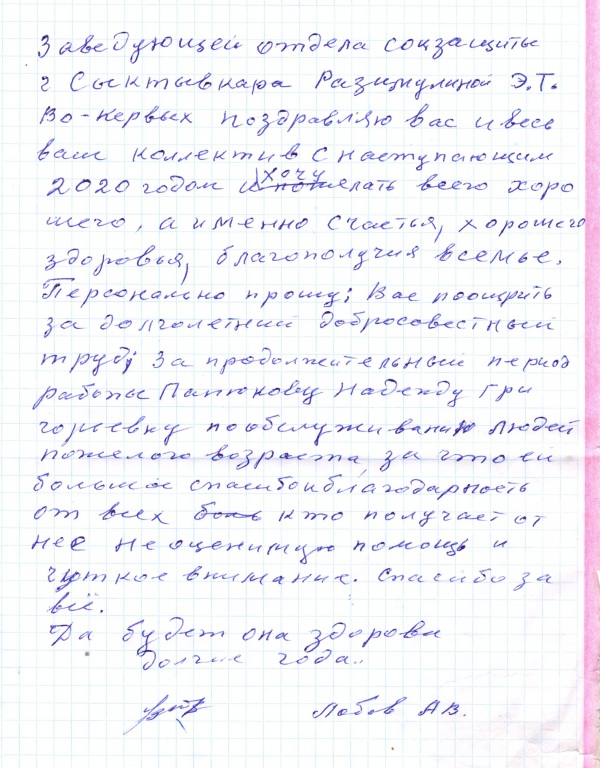 Заведующей отдела соцзащиты
г Сыктывкара Разумулиной Э.Т.
Во-первых поздравляю вас и весь
ваш коллектив с наступающим
2020 годом и хочу пожелать всего хоро
шего, а именно счастья, хорошего
здоровья, благополучия в семье.
Персонально прошу; Вас поощрить
за долголетний добросовестный
труд; за продолжительный период
работы Панюкову Надежду Гри
горьевну по обслуживанию людей
пожелого возраста, за что ей
большое спасибо и благодарность
от всех кто получает от
неё не оценимую помощь и
чуткое внимание. Спасибо за
всё.
Да будет она здорова
долгие года..
Лобов А В.